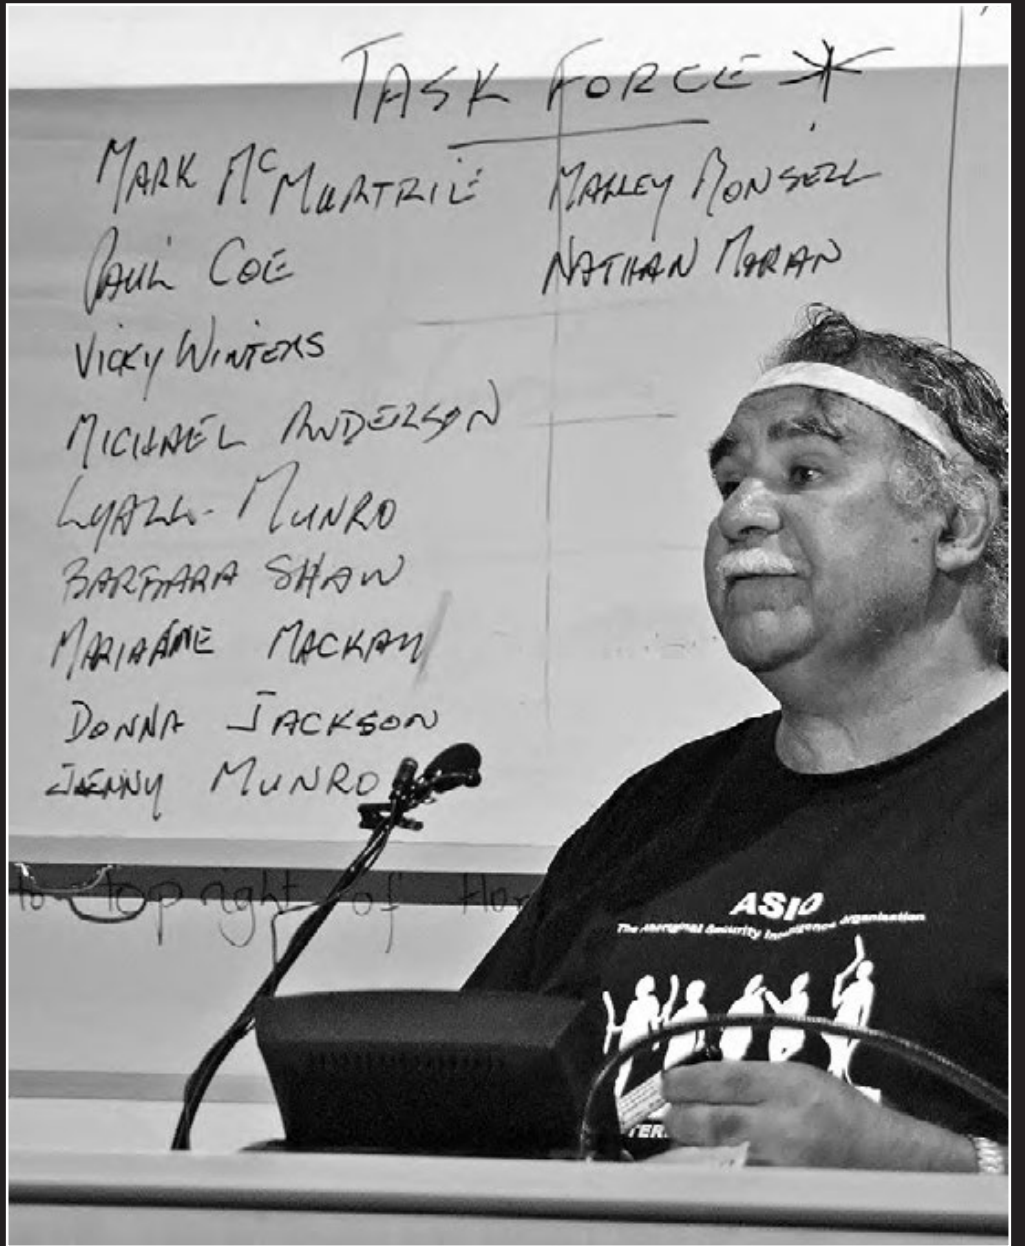 TASK FORCE *
MARK McMURTRIE
PAUL COE
VICKY WINTERS
MICHAEL ANDERSON
LYALL MUNRO
BARBARA SHAW
MARIANNE MACKAY
DONNA JACKSON
JENNY MUNRO
MALLEY MONSELL
NATHAN MORAN
to top right of
ASIO
The Aboriginal Security Intelligence Organisation